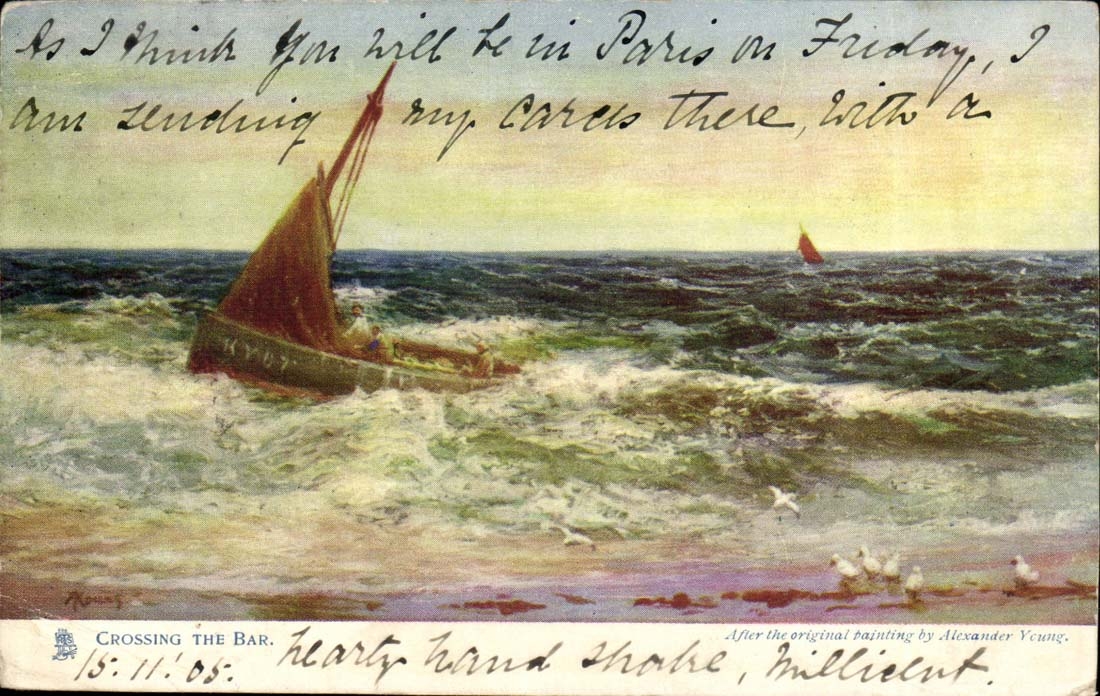 As I think you will be in Paris on Friday, I
am sending my cards there, with a
AYoung
CROSSING THE BAR.
After the original painting by Alexander Young.
15.11.05. hearty hand shake, Millicent.